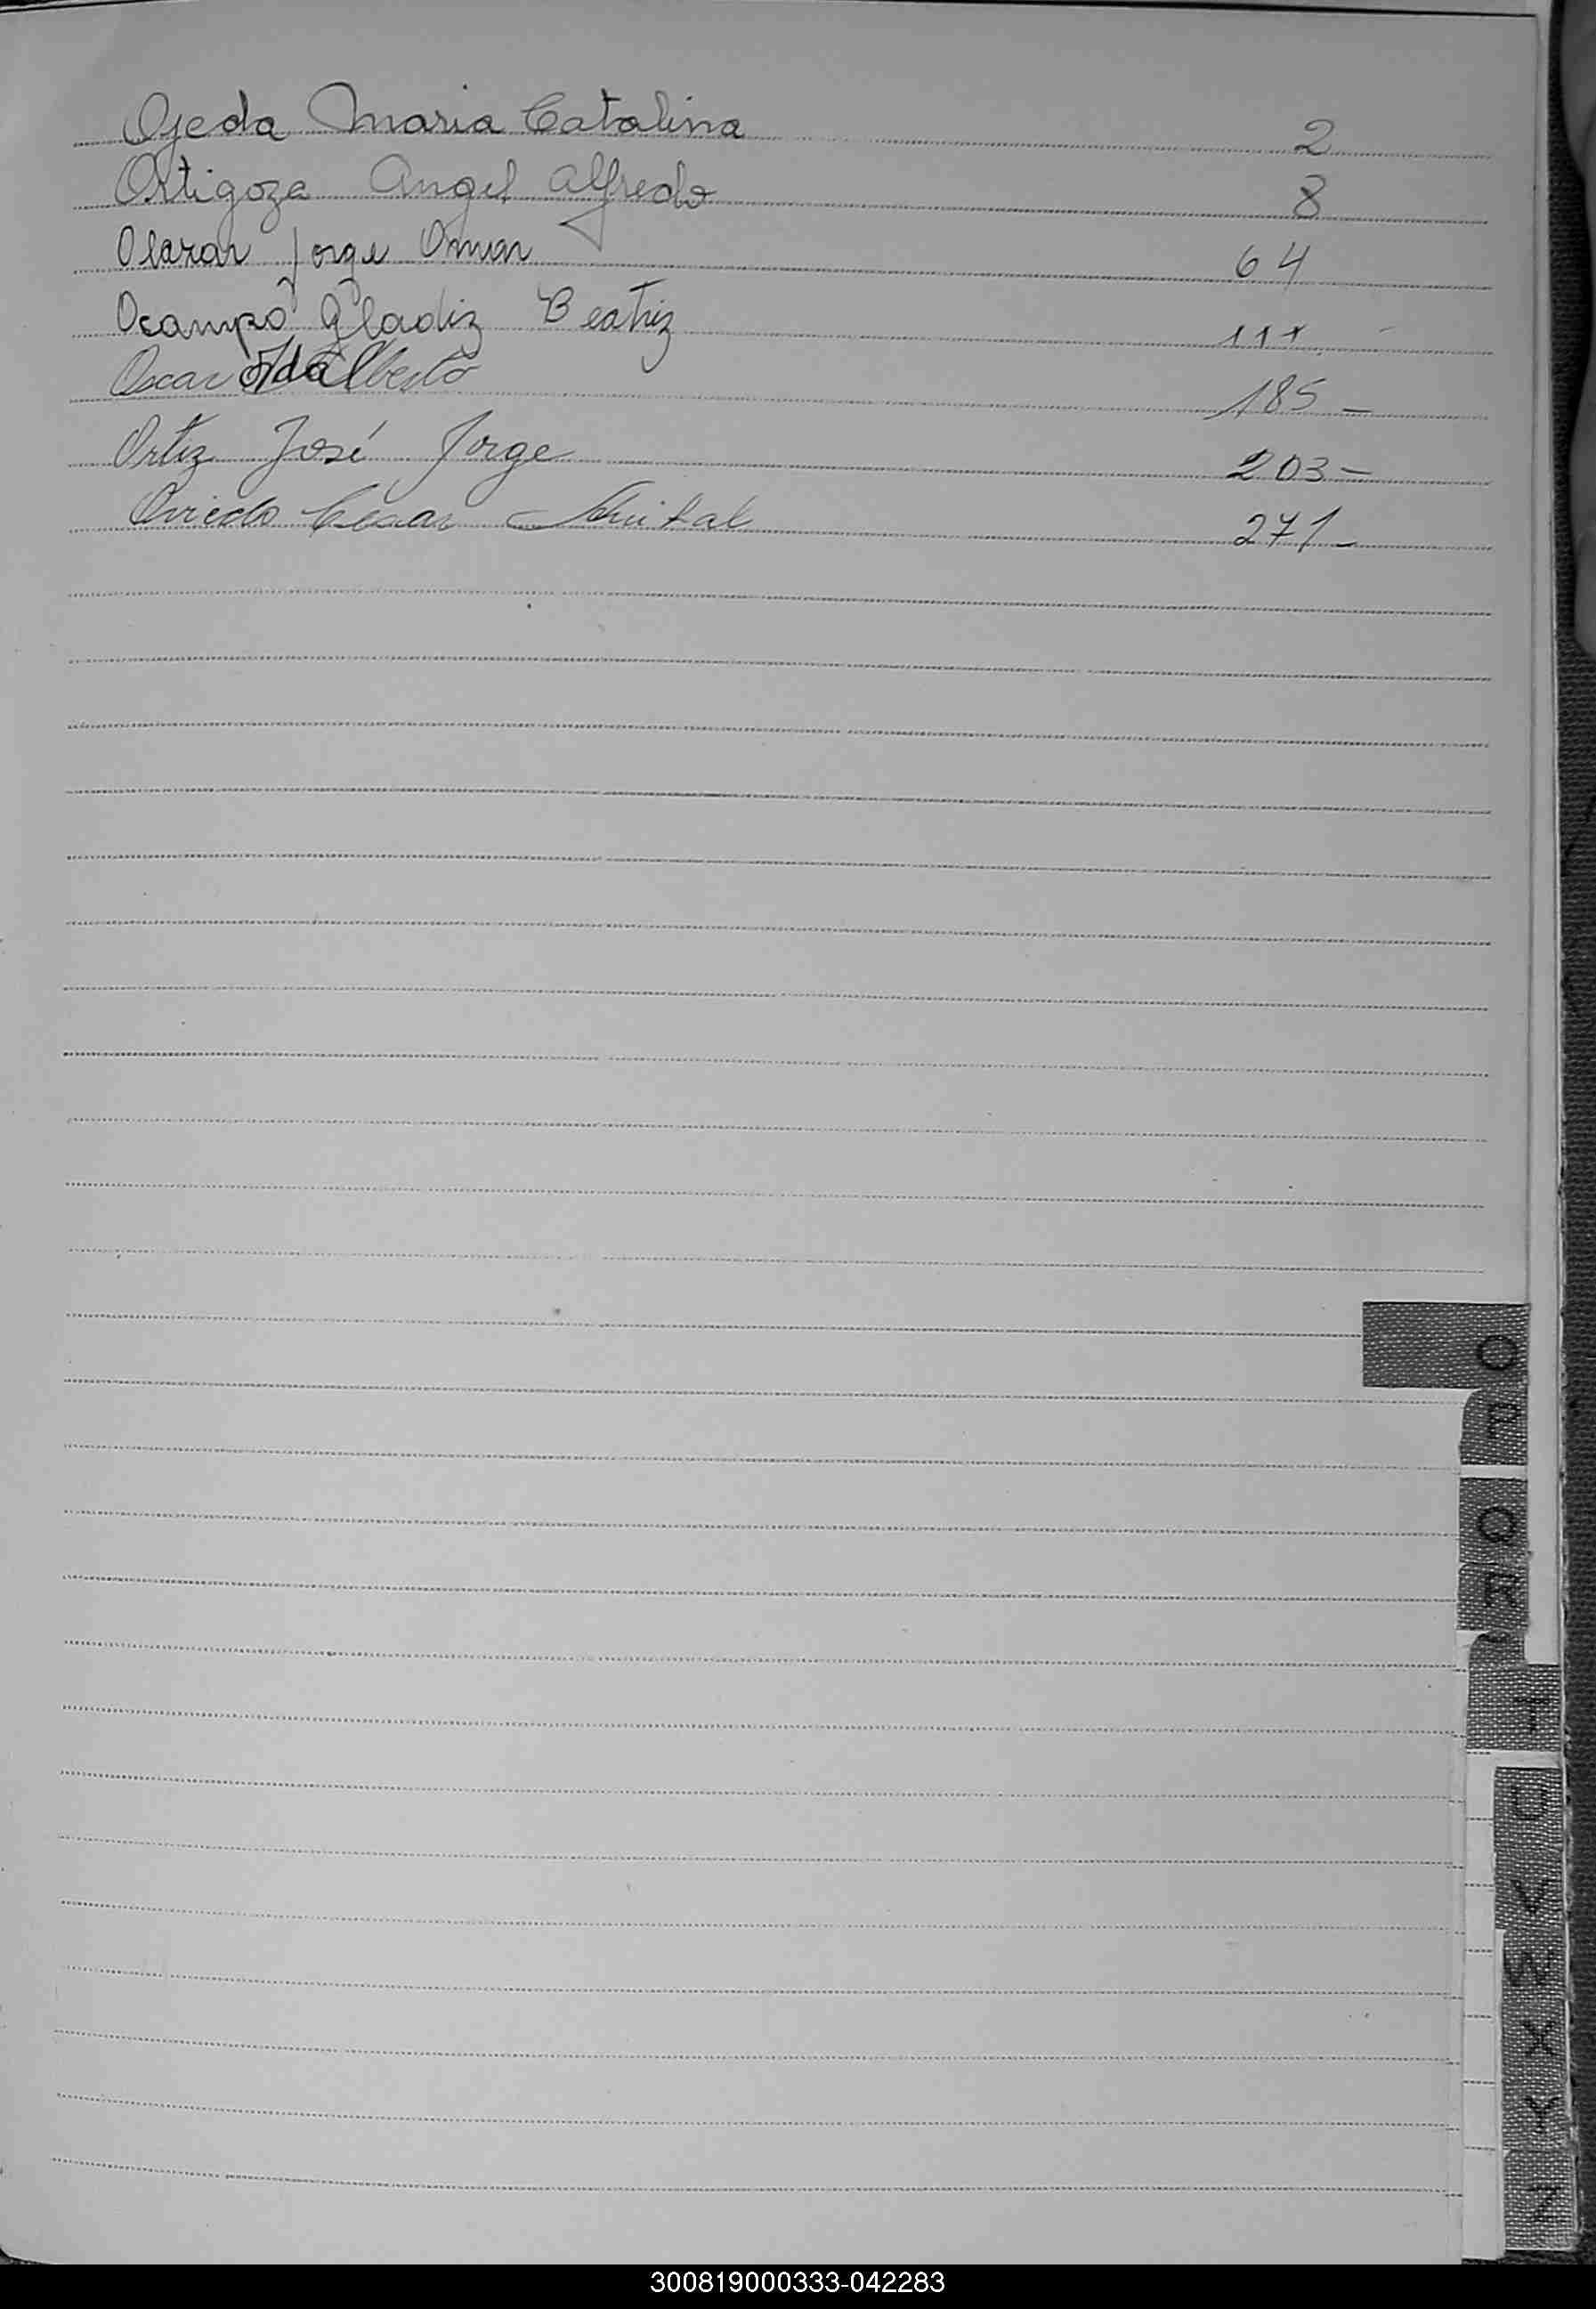 Ojeda Maria Catalina 2
Ortigoza Angel Alfredo 8
Olazar Jorge Omar 64
Ocampo Gladiz Beatriz 111
Oscar Alberto 185 -
Ortiz José Jorge 203 -
Oviedo Cesar Anibal 271 -
O
P
Q
R
T
U
V
W
X
Y
Z
300819000333-042283